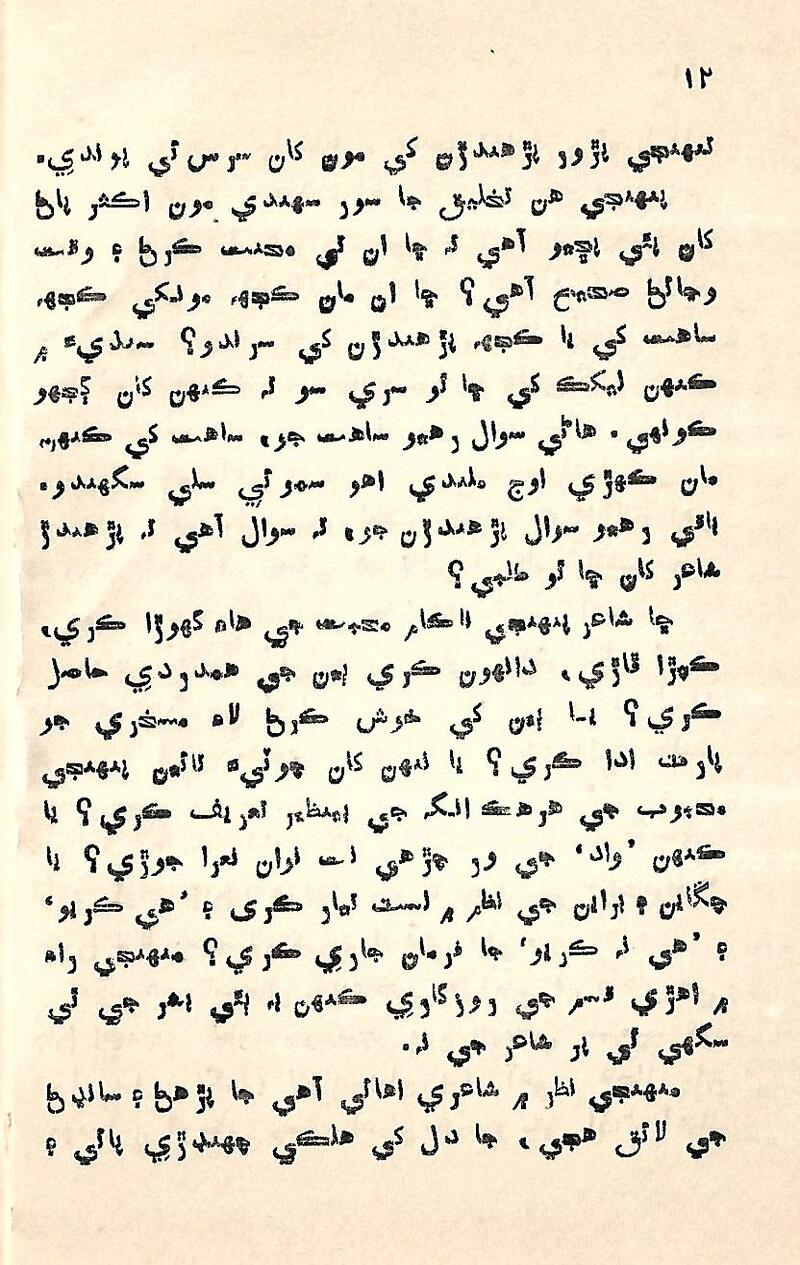 ١٢
تنهنجي پڙور پڙهندڙن کي مون کان سرس ئي پوندي.
پنهنجي هن تخليق جا سور سهندي مون اڪثر پاڻ
کان پئي پڇيو آهي ته ڇا ان تي محنت ڪرڻ ۽ وقت
وڃائڻ صحيح آهي؟ ڇا ان مان ڪجهہ مونکي ڪجهہ
ساهت کي يا ڪجهہ پڙهندڙن کي سرندو؟ سنڌيءَ ۾
ڪنهن ليکڪ کي ڇا ٿو سري سو ته ڪنهن کان ڳجهو
ڪونهي. هاڻي سوال رهيو ساهت جو، ساهت کي ڪنهن
مان ڪهڙي اوج ملندي اهو سمو ئي سلي سگهندو.
باقي رهيو سوال پڙهندڙن جو، ته سوال آهي ته پڙهندڙ
شاعر کان ڇا ٿو طلبي؟
ڇا شاعر پنهنجي ناڪام محبت جي هاءِ گهوڙا ڪري،
ڪپڙا ڦاڙي، دانهون ڪري ٻين جي همدردي حاصل
ڪري؟ يا ٻين کي خوش ڪرڻ لاءِ مسخري جو
پارٽ ادا ڪري؟ يا ننهن کان چوٽيءَ تائين پنهنجي
محبوب جي هرهڪ انگ جي بينظير تعريف ڪري؟ يا
ڪنهن ’واد‘ جي ور چڙهي نت نوان نعرا جوڙي؟ يا
چڱاين ۽ براين جي نظر ۾ لسٽ تيار ڪري ۽ ’هي ڪريو‘
۽ ’هي نه ڪريو‘ جا فرمان جاري ڪري؟ منهنجي راءِ
۾ اهڙي قسم جي روزڪاوي ڪنهن به ٻئي هنر جي ٿي
سگهي ٿي پر شاعر جي نه.
منهنجي نظر ۾ شاعري اهائي آهي جا پڙهڻ ۽ سانڍڻ
جي لائق هجي، جا دل کي هلڪي چهنڊڙي پائي ۽